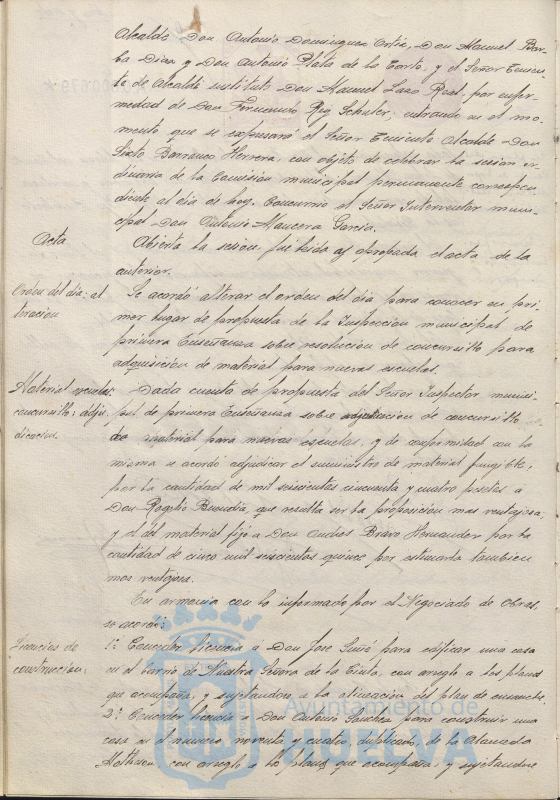 Alcalde Don Antonio Dominguez Ortiz, Don Manuel Bar-
ba Diaz y Don Antonio Plata de la Corte, y el Señor Tenien-
te de Alcalde sustituto Don Manuel Lazo Real, por enfer-
medad de Don Fernando Rey Schuler, entrando en el mo-
mento que se expresará el Señor Teniente Alcalde Don
Sixto Barranco Herrera, con objeto de celebrar la sesion or-
dinaria de la Comisión municipal permanente correspon-
diente al dia de hoy. Concurrió el Señor Interventor muni-
cipal Don Antonio Mancera Garcia.
Acta
Abierta la sesion, fue leida y aprobada el acta de la
anterior.
Orden del dia: al-
teración
Se acordó alterar el orden del dia para conocer en pri-
mer lugar de propuesta de la Inspección municipal de
primera Enseñanza sobre resolucion de concursillo para
adquisicion de material para nuevas escuelas.
Material escuelas:
concursillo: adju-
dicacion.
Dada cuenta de propuesta del Señor Inspector munici-
pal de primera Enseñanza sobre adjudicacion de concursillo
de material para nuevas escuelas, y de conformidad con la
misma se acordó adjudicar el suministro de material fungible,
por la cantidad de mil seiscientas cincuenta y cuatro pesetas a
Don Rogelio Buendia, que resulta ser la proposicion mas ventajosa,
y el del material fijo a Don Andres Bravo Hernandez por la
cantidad de cinco mil seiscientas quince por estimarla tambien
mas ventajosa.
En armonia con lo informado por el Negociado de Obras,
se acordó:
Licencias de
construccion:
1.º Conceder licencia á Don Jose para edificar una casa
en el barrio de Nuestra Señora de la Cinta, con arreglo a los planos
que acompaña, y sujetandose a la alineacion del plan de ensanche.
2.º Conceder licencia a Don Antonio Sanchez para construir una
casa en el numero noventa y cuatro, duplicado, de la Alameda
con arreglo a los planos que acompaña, y sujetandose
Ayuntamiento de
HUELVA